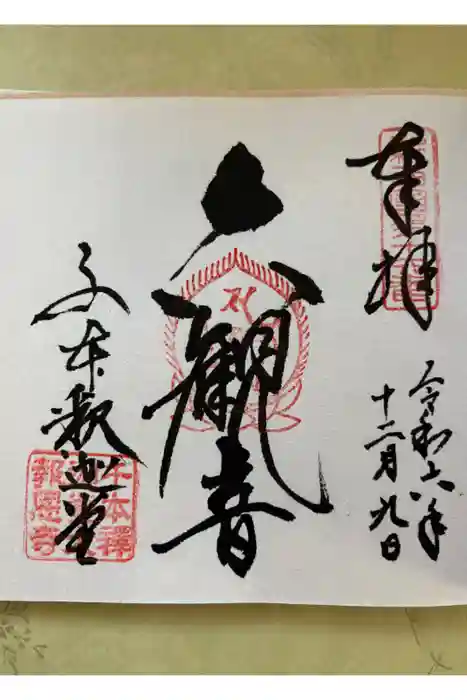 奉拝
令和六年
十二月九日
六観音
千本釈迦堂
千本釋
報恩寺